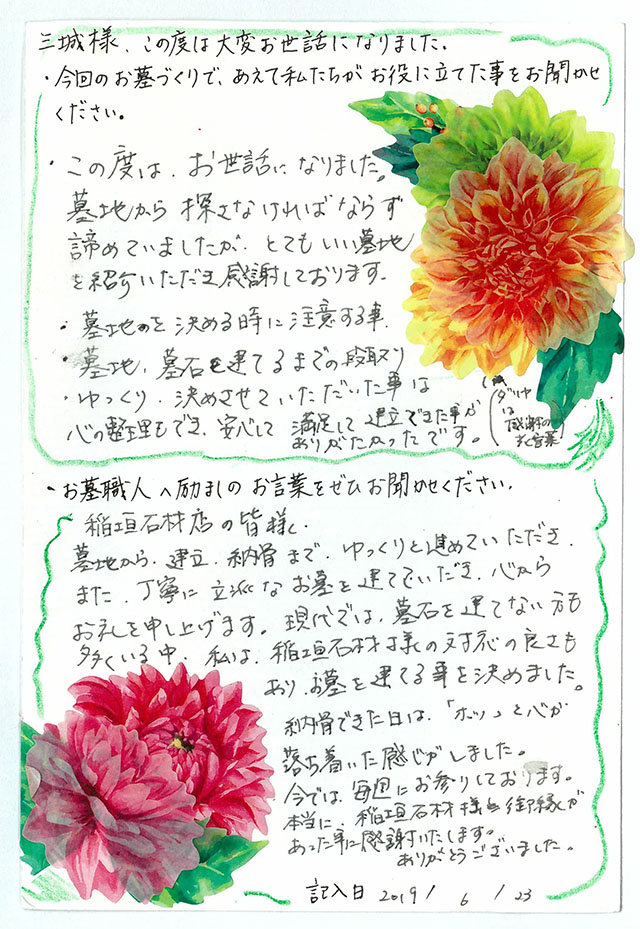 三城様、この度は大変お世話になりました。
・今回のお墓づくりで、あえて私たちがお役に立てた事をお聞かせ
ください。
・この度は、お世話になりました。
墓地から探さなければならず
諦めていましたが、とてもいい墓地
を紹介いただき感謝しております。
・墓地を決める時に注意する事。
・墓地、墓石を建てるまでの段取り
・ゆっくり、決めさせていただいた事は
心の整理もでき、安心して 満足して建立できた事が
ありがたかったです。
ダリヤ
は
感謝の
花言葉
・お墓職人へ励ましのお言葉をぜひお聞かせください。
稲垣石材店の皆様、
墓地から、建立、納骨まで、ゆっくりと進めていただき、
また、丁寧に立派なお墓を建てていただき、心から
お礼を申し上げます。現代では、墓石を建てない方も
多くいる中、私は、稲垣石材様の対応の良さも
あり、お墓を建てる事を決めました。
納骨できた日は、「ホッ」と心が
落ち着いた感じがしました。
今では、毎週にお参りしております。
本当に、稲垣石材様と御縁が
あった事に感謝いたします。
ありがとうございました。
記入日 2019 / 6 / 23